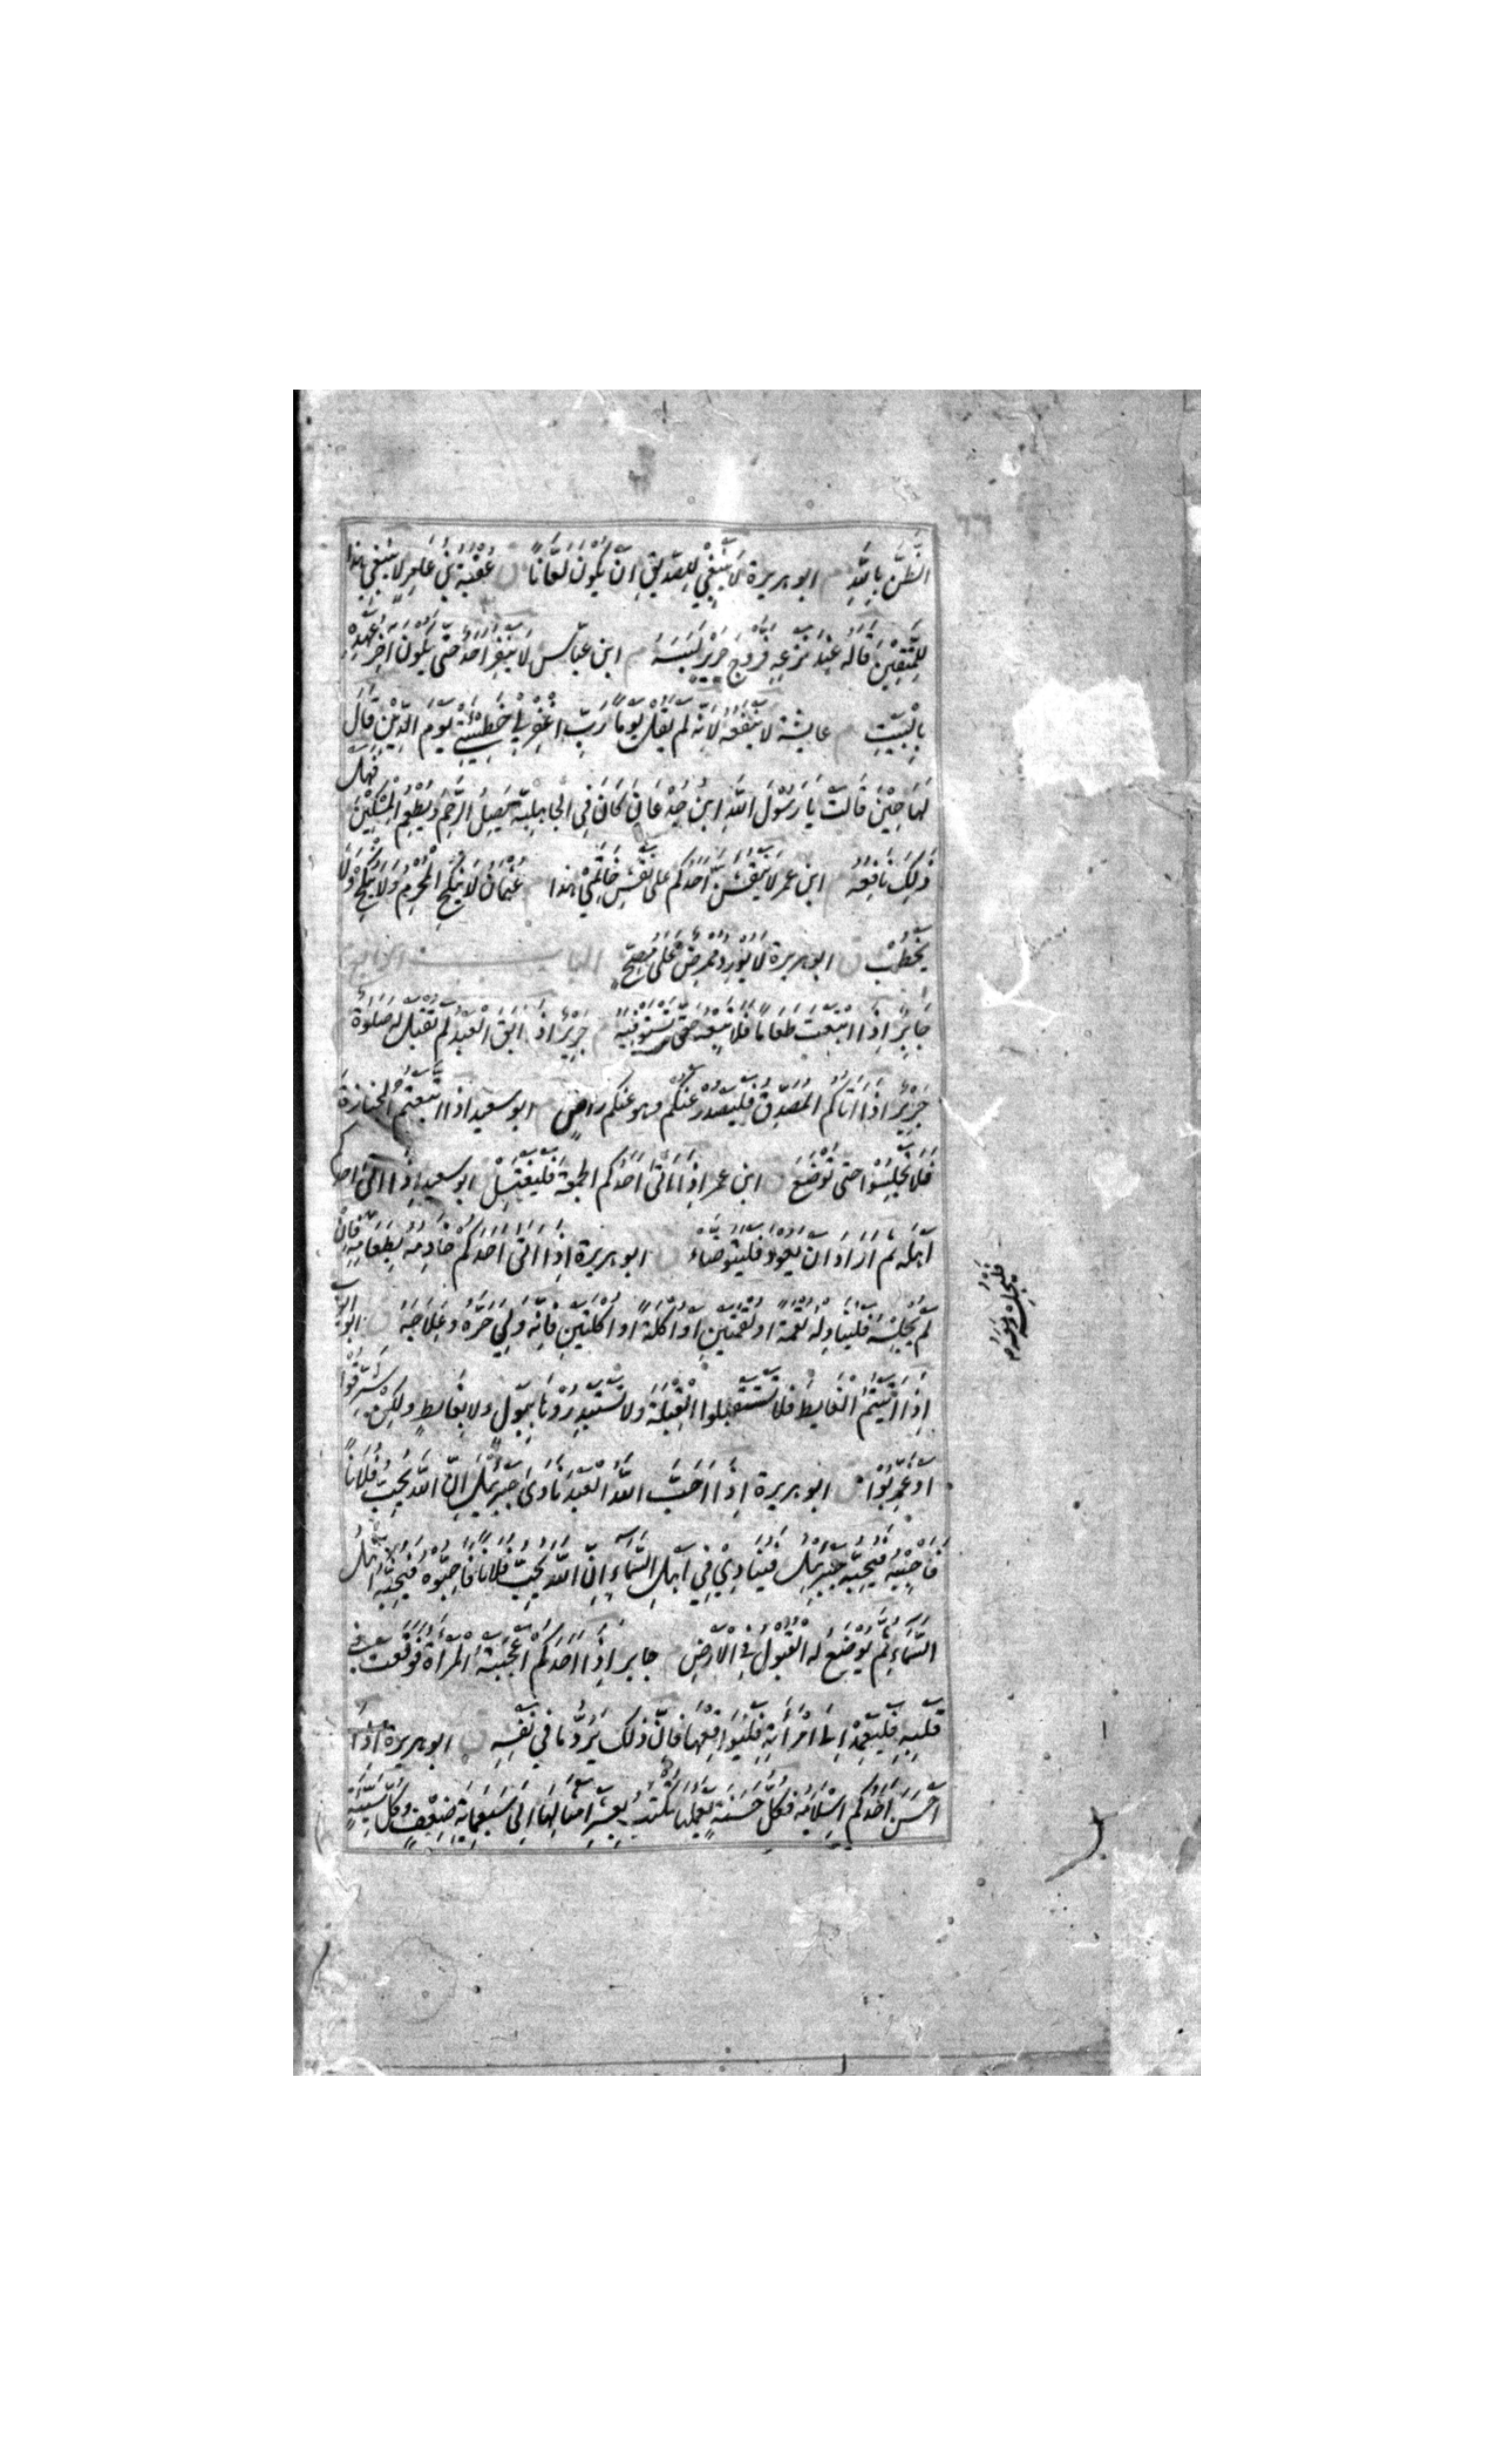 الظَّنَّ بِاللَّهِ م ابو هريرة لَا يَنْبَغِي لِلصِّدِّيقِ اَنْ يَكُونَ لَعَّانًا ق عُقْبَةُ بْنُ عَامِرٍ لَا يَنْبَغِي هذا
لِلْمُتَّقِيْنَ قَالَهُ عِنْدَ نَزْعِهِ فَرُّوْجَ حَرِيْرٍ لَبِسَهُ م ابن عباس لَا يَنْفِرْ اَحَدٌ حَتّى يَكُونَ اخِرُ عَهْدِهِ
بِالْبَيْتِ م عايشة لَا يَنْفَعُهُ لِاَنَّهُ لَمْ يَقُلْ يَوْمًا رَبِّ اغْفِرْ لِي خَطِيْئَتِي يَوْمَ الدِّيْنِ قَالَ
لَهَا حِيْنَ قَالَتْ يَا رَسُوْلَ اللَّهِ ابن جُدْعَانَ كَانَ فِي الْجَاهِلِيَّةِ يَصِلُ الرَّحِمَ وَيُطْعِمُ الْمِسْكِيْنَ فَهَلْ
ذلِكَ نَافِعُهُ م ابن عمر لَا يَنْقُشَنَّ اَحَدُكُمْ عَلى نَقْشِ خَاتَمِيْ هذا م عُثْمَانُ لَا يَنْكِحُ الْمُحْرِمُ وَلَا يُنْكِحُ وَلَا
يَخْطُبْ ق ابو هريرة لَا يُوْرِدُ مُمْرِضٌ عَلى مُصِحٍّ الباب الرابع
جَابِرٌ اِذَا ابْتَعْتَ طَعَامًا فَلَا تَبِعْهُ حَتّى تَسْتَوْفِيَهُ م جَرِيْرٌ اذا اَبَقَ الْعَبْدُ لَمْ تُقْبَلْ لَهُ صَلوةٌ
جَرِيْرٌ اذَا اَتَاكُمُ الْمُصَدِّقُ فَلْيَصْدُرْ عَنْكُمْ وهو عنكم رَاضٍ م ابو سعيد اذا اتَّبَعْتُمُ الْجَنَازَةَ
فَلَا تَجْلِسُوْا حتى تُوْضَعَ ق ابن عمر اِذَا اَتى اَحَدُكُمُ الجمعة فَلْيَغْتَسِلْ ابو سعيد اِذَا اَتى احدكم
اَهْلَهُ ثُمَّ اَرَادَ اَنْ يَعُودَ فَلْيَتَوَضَّاءْ ق ابو هريرة اِذَا اَتى اَحَدَكُمْ خَادِمُهُ بِطَعَامِهِ فَاِنْ
لَمْ يُجْلِسْهُ فَلْيُنَاوِلْهُ لُقْمَةً او لُقْمَتَيْنِ اَوْ اُكْلَةً اَوْ اُكْلَتَيْنِ فَاِنَّهُ وَلِيَ حَرَّهُ وَعِلَاجَهُ ق ابو ايوب
اِذَا اَتَيْتُمُ الْغَايِطَ فَلَا تَسْتَقْبِلُوا الْقِبْلَةَ وَلَا تَسْتَدْبِرُوْهَا بِبَوْلٍ ولا بِغَايِطٍ وَلكِنْ شَرِّقُوْا
اَوْ غَرِّبُوْا ق ابو هريرة اِذَا اَحَبَّ اللَّهُ الْعَبْدَ نَادى جِبْرِئِيْلَ اِنَّ اللَّهَ يُحِبُّ فُلَانًا
فَاحْبِبْهُ فَيُحِبُّهُ جِبْرَئِيْلُ فَيُنَادِيْ فِي اَهْلِ السَّمَاءِ اِنَّ اللَّهَ يُحِبُّ فُلَانًا فَاَحِبُّوْهُ فَيُحِبُّهُ اَهْلُ
السَّمَاءِ ثُمَّ يُوْضَعُ لَهُ الْقَبُوْلُ فِي الْاَرْضِ م جابر اِذَا اَحَدُكُمْ اَعْجَبَتْهُ الْمَرْاَةُ فَوَقَعَتْ في
قَلْبِهِ فَلْيَعْمِدْ اِلى امْرَأَتِهِ فَلْيُوَاقِعْهَا فَاِنَّ ذلك يَرُدُّ مَا فِي نَفْسِهِ ق ابو هريرة اِذَا
اَحْسَنَ اَحَدُكُمْ اِسْلَامَهُ فَكُلُّ حَسَنَةٍ يَعْمَلُهَا تُكْتَبُ بِعَشْرِ اَمْثَالِهَا اِلى سَبْعِمِايَةِ ضِعْفٍ وَكُلُّ سَيِّئَةٍ